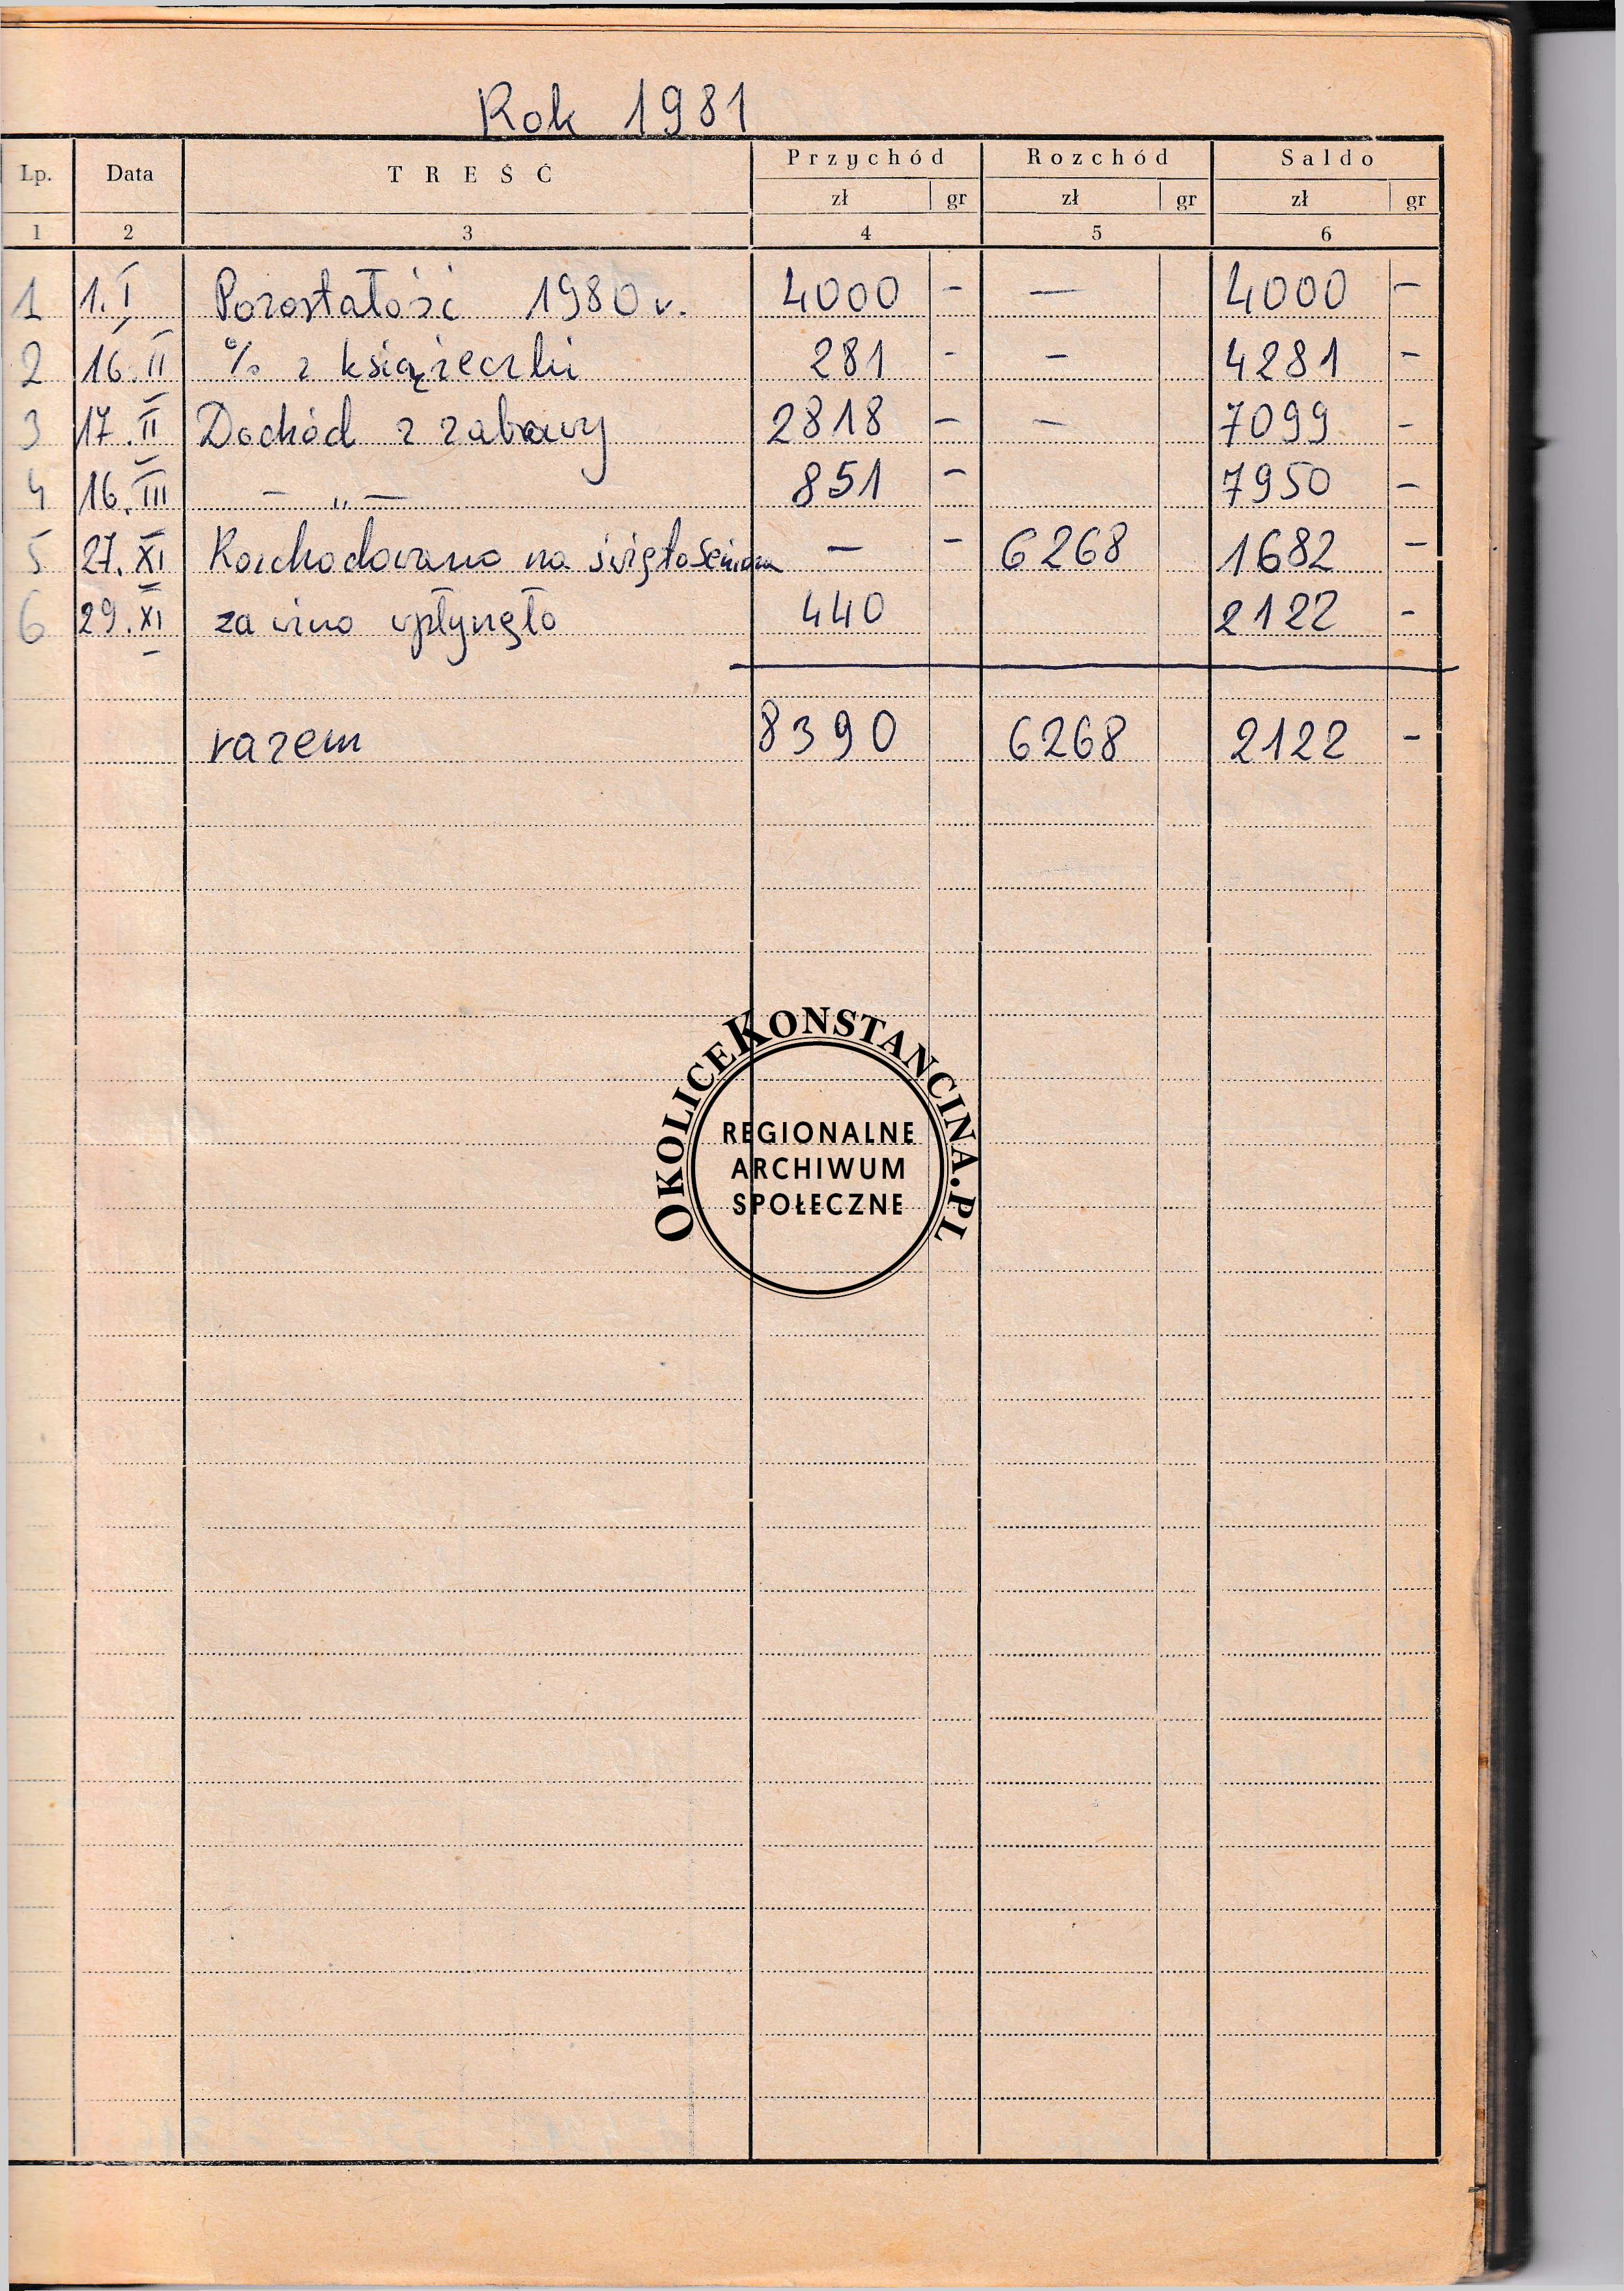 Rok 1981
Lp. Data TREŚĆ Przychód Rozchód Saldo
zł gr zł gr zł gr
1 2 3 4 5 6
1 1. I Pozostałość 1980 r. 4000 - — 4000 -
2 16. II % z książeczki 281 - - 4281 -
3 17. II Dochód z zabawy 2818 - - 7099 -
4 16. III — „ — 851 - 7950 -
5 27. XI Rozchodowano na - - 6268 1682 -
6 29. XI za wino wpłynęło 440 2122 -
razem 8390 6268 2122 -
OKOLICEKONSTANCINA.PL
REGIONALNE
ARCHIWUM
SPOŁECZNE